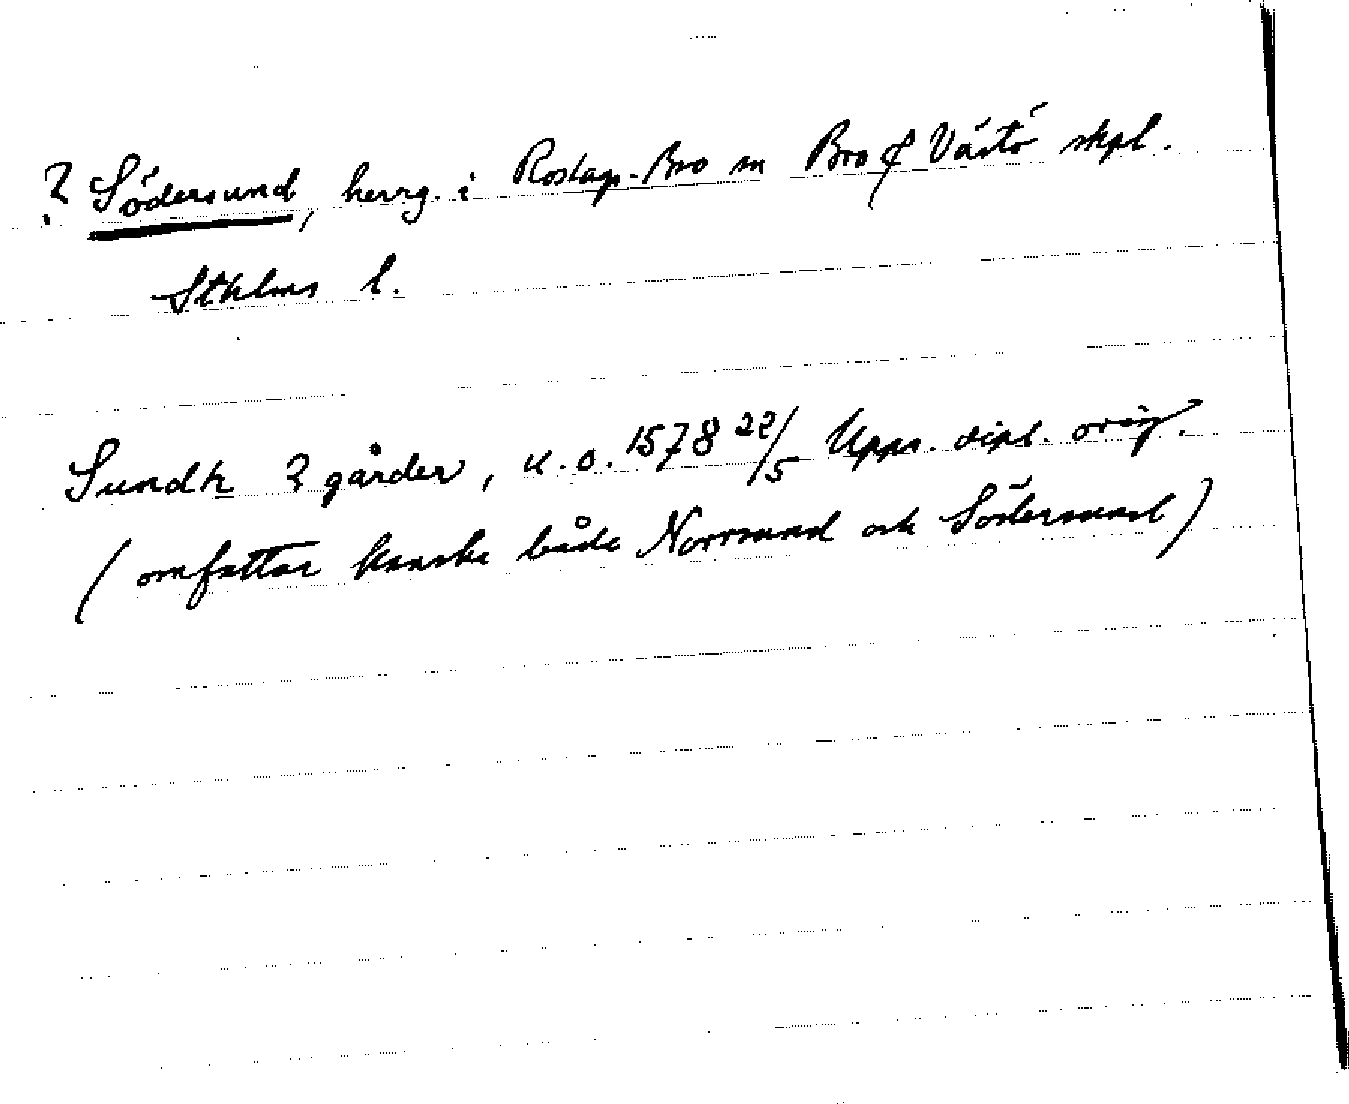 ? Södersund, herrg. i Roslags-Bro sn Bro o Väktö skpl.
Sthlms l.
Sundh 2 gårder, u.o. 1578 22/5 Upps. dipl. orig.
(omfattar kanske både Norrsund och Södersund)